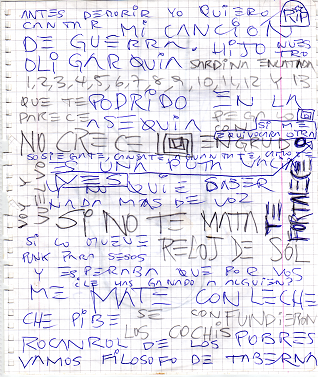 ANTES DE MORIR YO QUIERO
CANTAR MI CANCION
DE GUERRA. HIJO NUESTRO
OLIGARQUIA SARDINA ENLATADA
1,2,3,4,5,6,7,8,9,10,11,12 Y 13
QUE TE PODRIDO EN LA
PARECE ASEQUIA
NO CRECE ENGRUDO
SI ME EQUIVOCABA OTRA
ES UNA PUTA
VOY Y VUELVO
NO QUIE SABER
NADA MAS DE VOZ
SI NO TE MATA TE FORTALECE
SI LO MUEVE RELOJ DE SOL
PUNK PARA SESOS
Y ESPERABA QUE POR VOS
¿LE HAS GANADO A ALGUIEN?
ME MATE CON LECHE
CHE PIBE SE CONFUNDIERON
LOS COCHIS
ROCANROL DE LOS POBRES
VAMOS FILOSOFO DE TABERNA
RIP